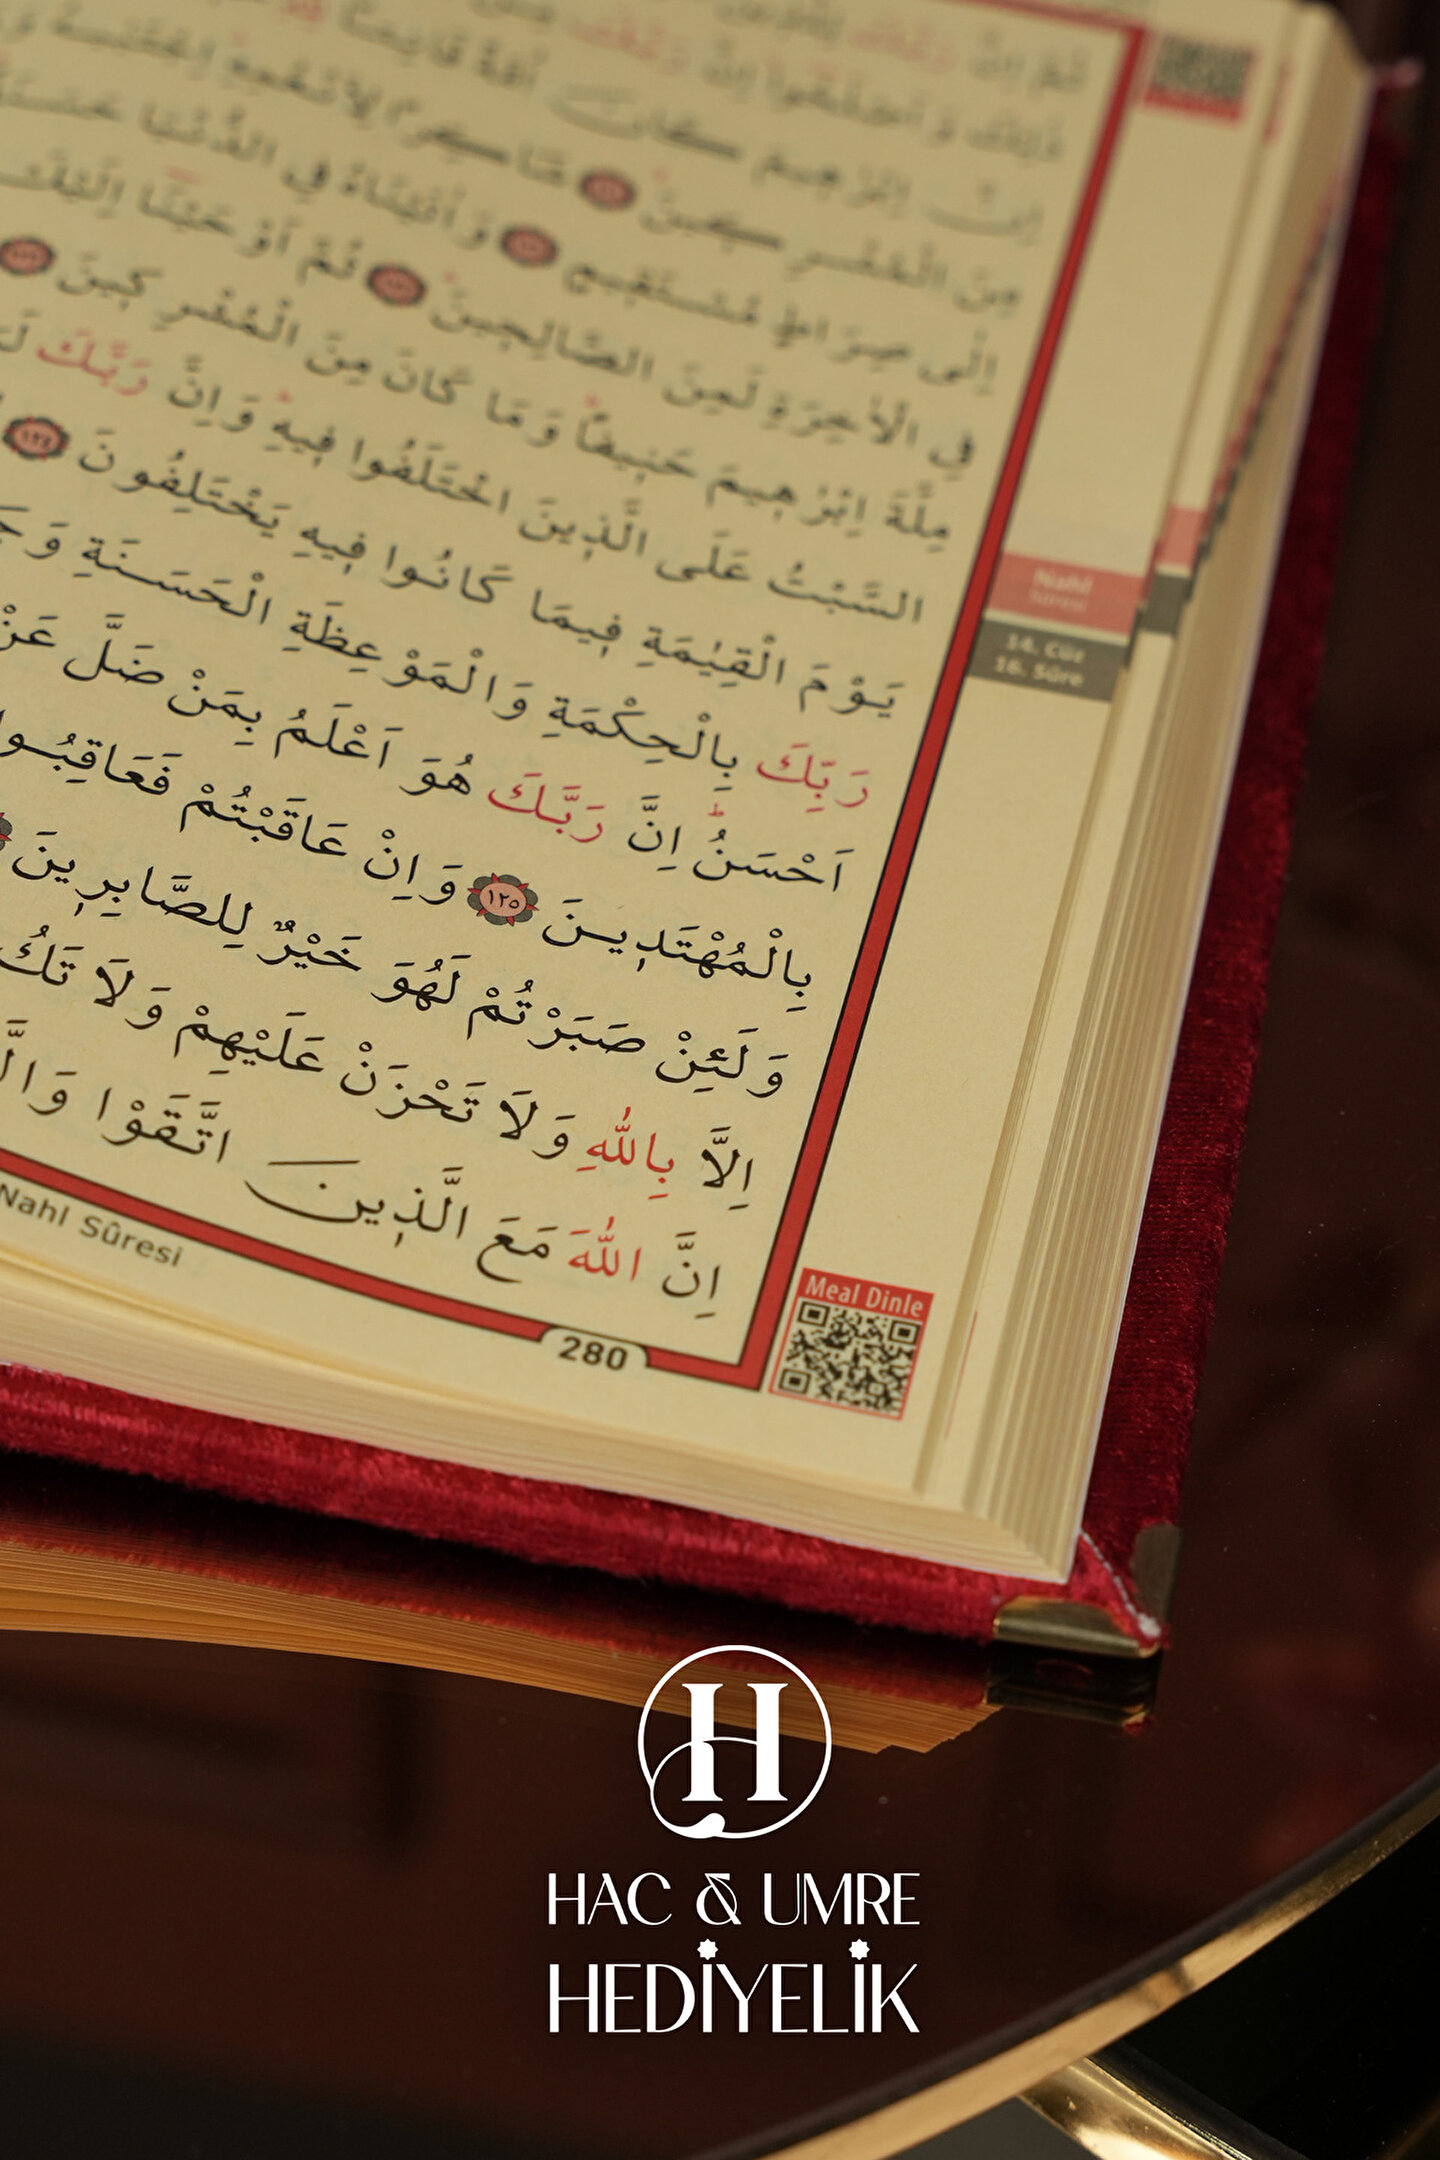 مِنَ الْمُشْرِكِينَ شَاكِرًا لِاَنْعُمِهِ
اِلٰى صِرَاطٍ مُسْتَقِيمٍ وَاٰتَيْنَاهُ فِي الدُّنْيَا
فِي الْاٰخِرَةِ لَمِنَ الصَّالِحِينَ ثُمَّ اَوْحَيْنَا اِلَيْكَ
مِلَّةَ اِبْرٰهِيمَ حَنِيفًا وَمَا كَانَ مِنَ الْمُشْرِكِينَ
السَّبْتُ عَلَى الَّذِينَ اخْتَلَفُوا فِيهِ وَاِنَّ رَبَّكَ
يَوْمَ الْقِيٰمَةِ فِيمَا كَانُوا فِيهِ يَخْتَلِفُونَ ١٢٤
رَبِّكَ بِالْحِكْمَةِ وَالْمَوْعِظَةِ الْحَسَنَةِ
اَحْسَنُ اِنَّ رَبَّكَ هُوَ اَعْلَمُ بِمَنْ ضَلَّ
بِالْمُهْتَدِينَ ١٢٥ وَاِنْ عَاقَبْتُمْ فَعَاقِبُوا
وَلَئِنْ صَبَرْتُمْ لَهُوَ خَيْرٌ لِلصَّابِرِينَ
اِلَّا بِاللّٰهِ وَلَا تَحْزَنْ عَلَيْهِمْ وَلَا تَكُ
اِنَّ اللّٰهَ مَعَ الَّذِينَ اتَّقَوْا
Nahl
Sûresi
14. Cüz
16. Sûre
Nahl Sûresi
280
Meal Dinle
H
HAC & UMRE
HEDİYELİK